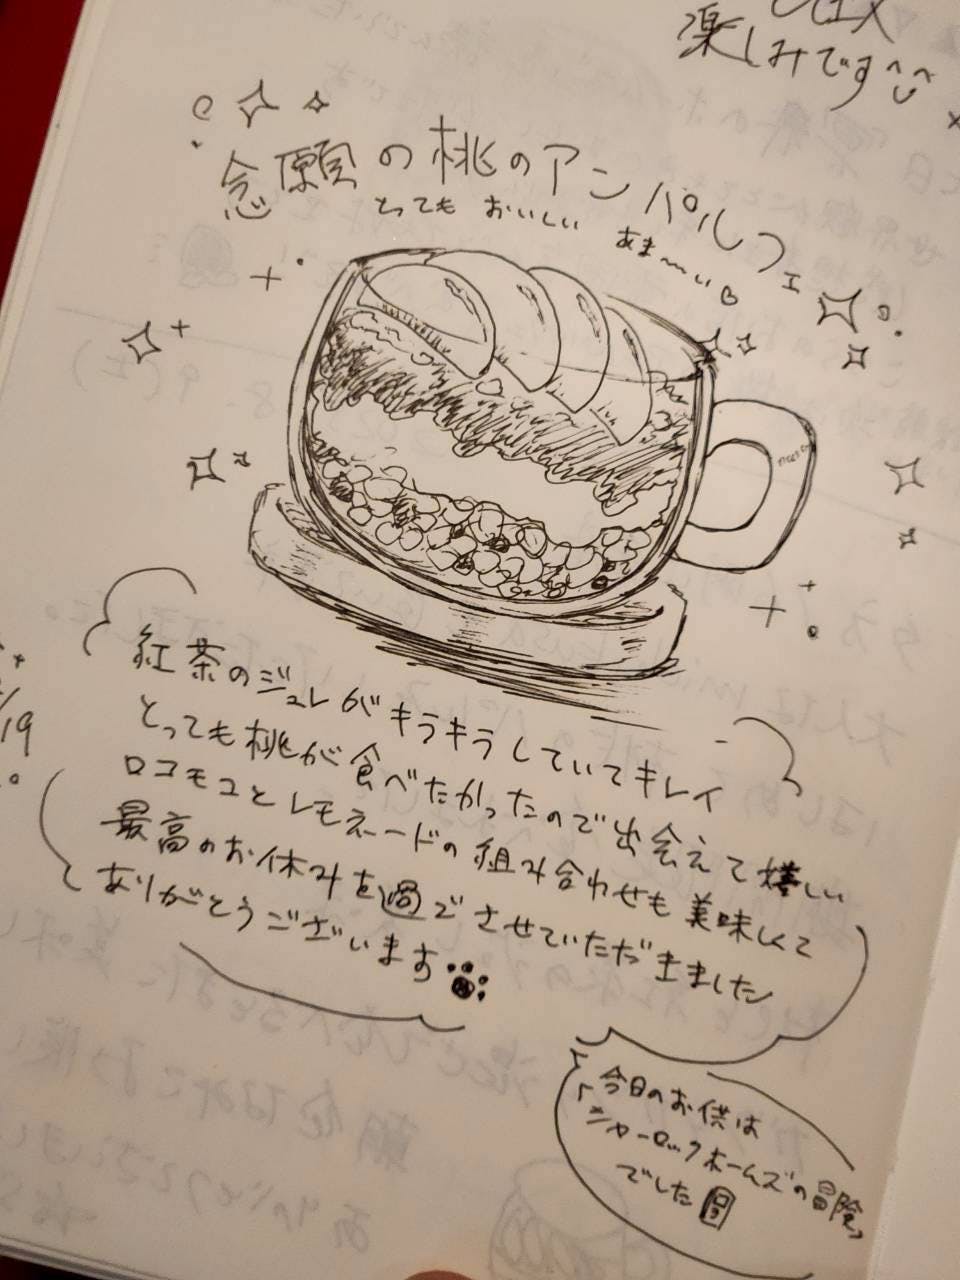 楽しみです
念願の桃のアンパルフェ
とっても おいしい あま〜い♡
紅茶のジュレがキラキラしていてキレイ
とっても桃が食べたかったので出会えて嬉しい
ロコモコとレモネードの組み合わせも美味しくて
最高のお休みを過ごさせていただきました
ありがとうございます
19
今日のお供は
「シャーロックホームズの冒険」
でした